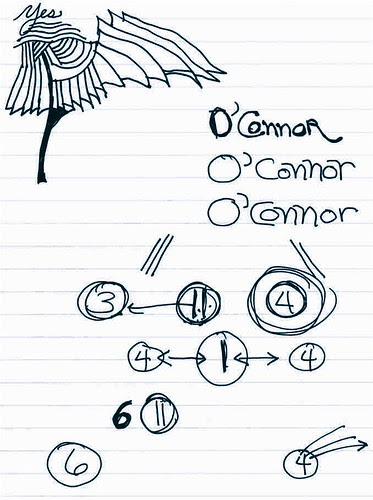 Yes
O'Connor
O'Connor
O'Connor
3 11 4
4 1 4
6 11
6 4